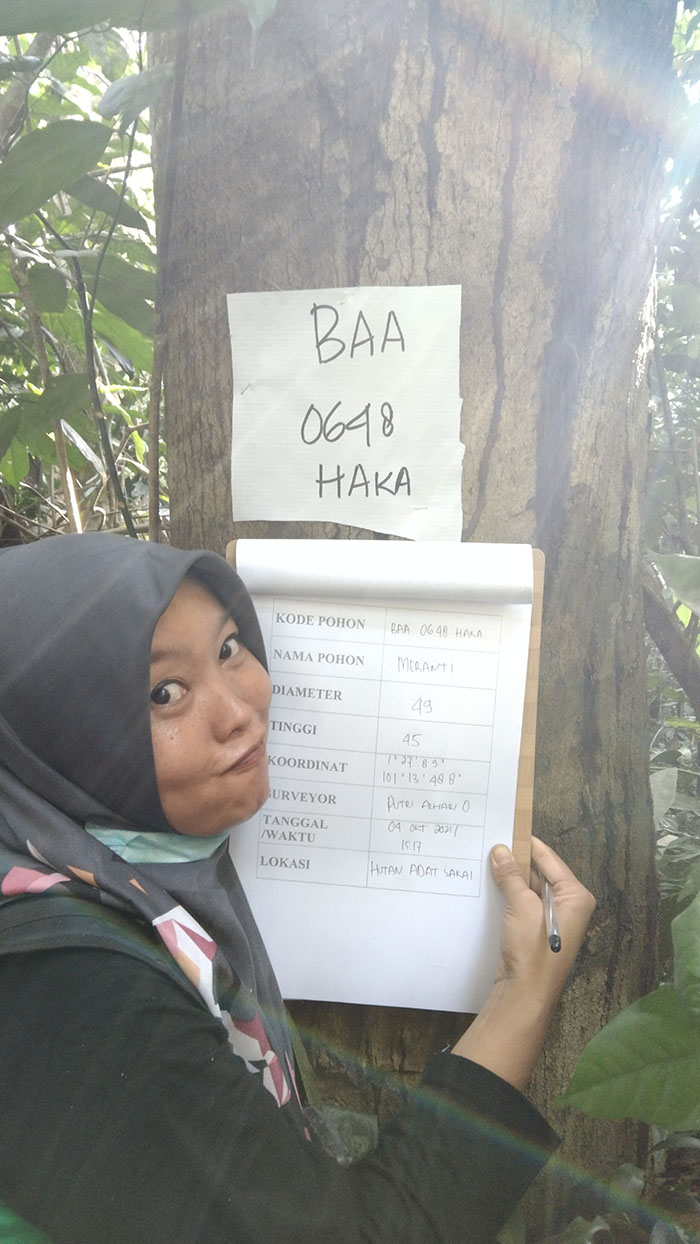 BAA
0648
HAKA
KODE POHON BAA 0648 HAKA
NAMA POHON MERANTI
DIAMETER 49
TINGGI 45
KOORDINAT 1° 27' 89"
101° 13' 488"
SURVEYOR PUTRI O
TANGGAL 04 OKT 2021/
/WAKTU 1517
LOKASI HUTAN ADAT SAKAI